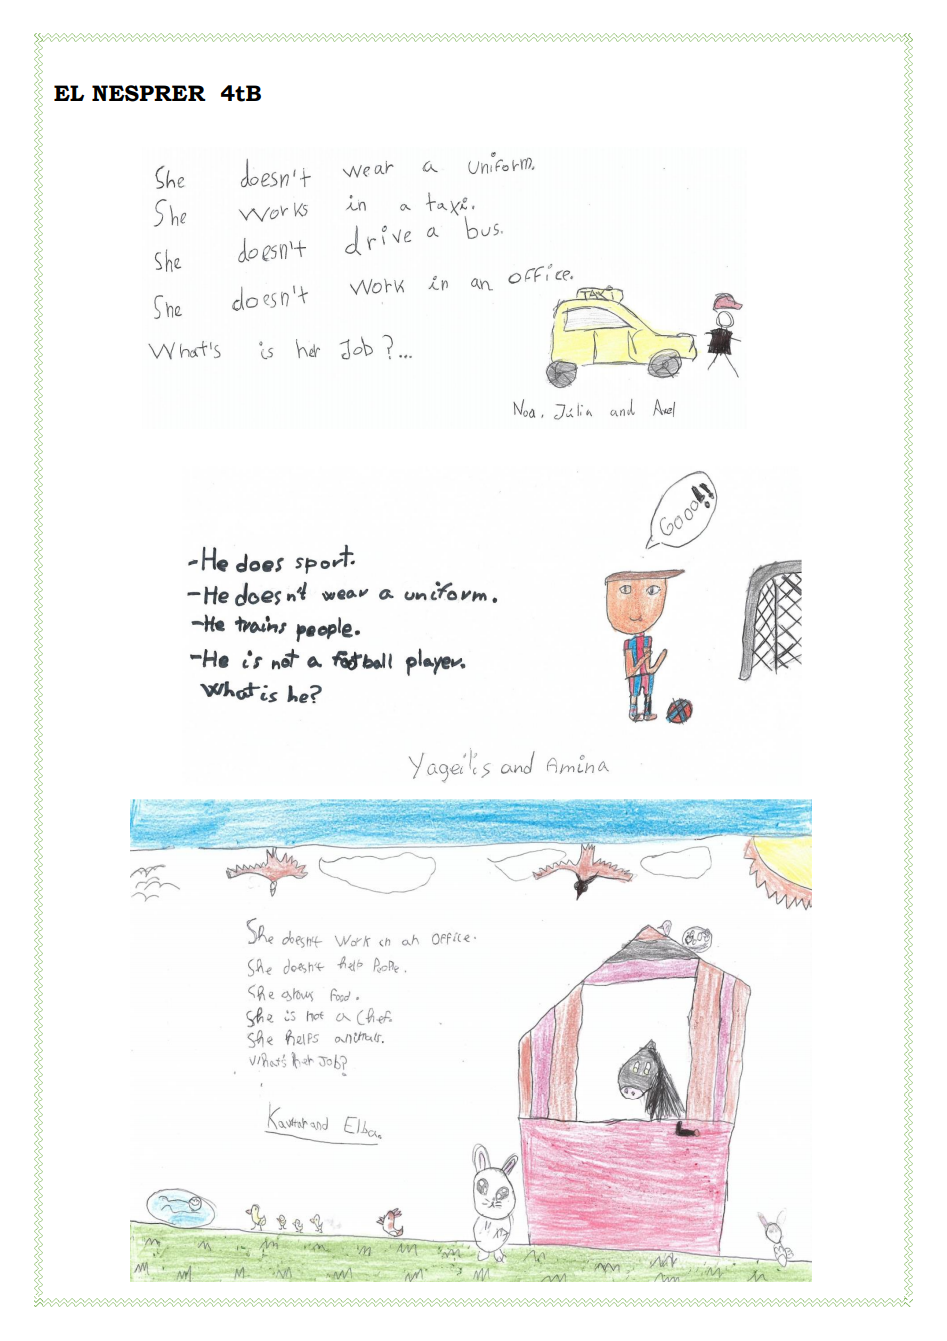 EL NESPRER 4tB
She doesn't wear a uniform.
She works in a taxi.
She doesn't drive a bus.
She doesn't work in an office.
TAXI
What's is her Job?...
Noa, Júlia and Axel
Goool!!
-He does sport.
-He doesn't wear a uniform.
-He trains people.
-He is not a football player.
What is he?
Yageilis and Amina
She doesn't work in an office.
She doesn't help People.
She grows food.
She is not a Chef.
She helps animals.
What's her Job?
and Elba.